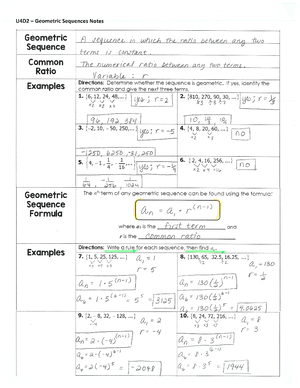 U4D2 – Geometric Sequences Notes
Geometric Sequence
A sequence in which the ratio between any two terms is constant.
Common Ratio
The numerical ratio between any two terms.
Variable: r
Examples
Directions: Determine whether the sequence is geometric. If yes, identify the common ratio and give the next three terms.
1. {6, 12, 24, 48,...} yes; r=2
96, 192, 384
2. {810, 270, 90, 30,...} yes; r=1/3
3. {-2, 10, -50, 250,...} yes; r=-5
-1250, 6250, -31,250
4. {4, 8, 20, 60, ...} no
5. {4, -1, 1/4, -1/16, ...} yes; r=-1/4
1/64, -1/256, 1/1024
6. {2, 4, 16, 256, ...} no
Geometric Sequence Formula
The nth term of any geometric sequence can be found using the formula:
an = a1 · r^(n-1)
where a1 is the first term and
r is the common ratio
Examples
Directions: Write a rule for each sequence, then find
7. {1, 5, 25, 125, ...} a1 = 1
r = 5
an = 1·5^(n-1)
= 3125
8. {130, 65, 32.5, 16.25, ...} a1 = 130
r = 1/2
an = 130(1/2)^n-1
= 4.0625
9. {2, -8, 32, -128, ...} a1 = 2
r = -4
an = 2·(-4)^(n-1)
= -2048
10. {8, 24, 72, 216, ...} a1 = 8
r = 3
an = 8·3^(n-1)
= 1944